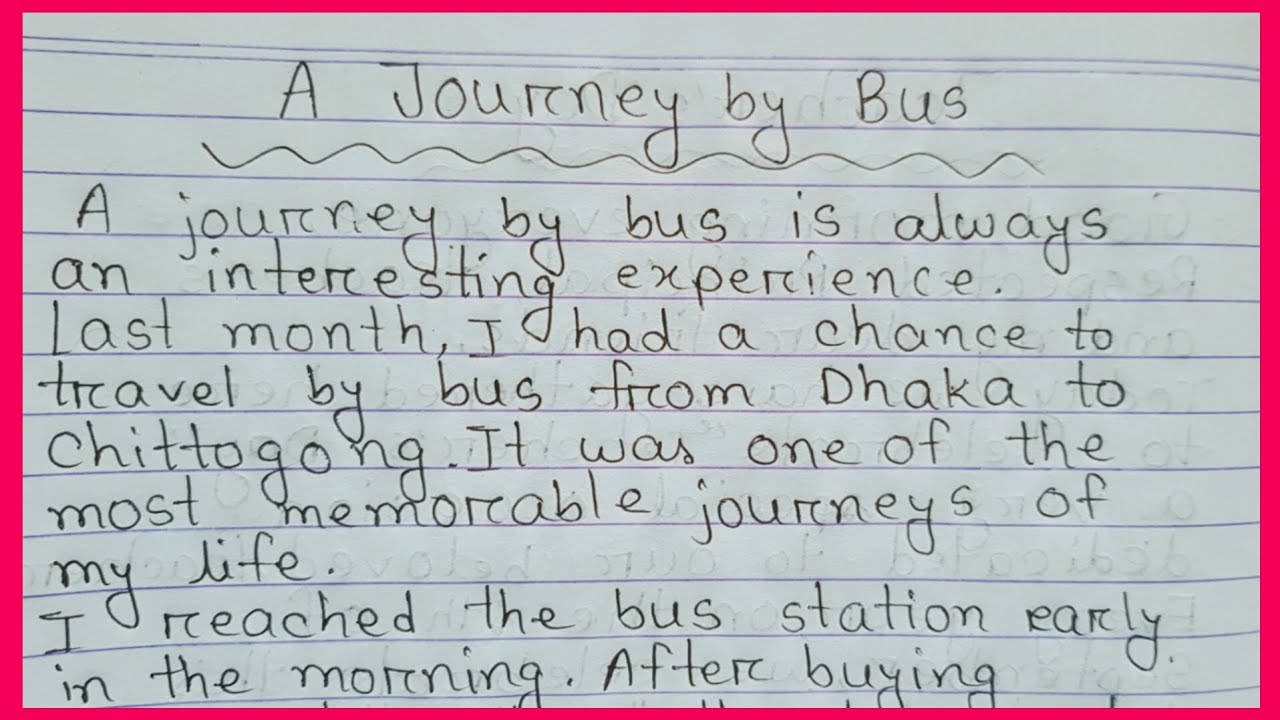 A Journey by Bus
A journey by bus is always
an interesting experience.
Last month, I had a chance to
travel by bus from Dhaka to
Chittogong. It was one of the
most memorable journeys of
my life.
I reached the bus station early
in the morning. After buying